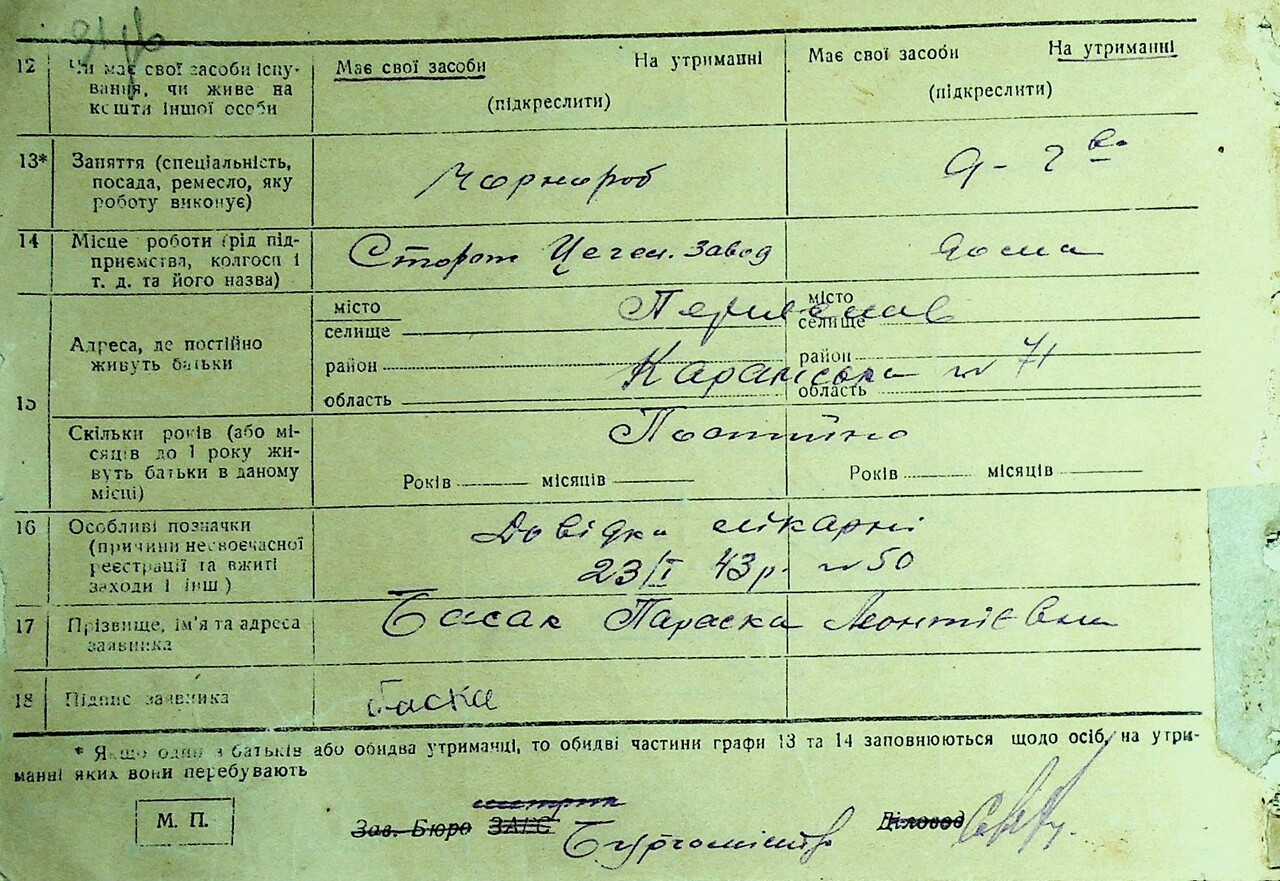 12 Чи має свої засоби існу-
вання, чи живе на
кошти іншої особи
Має свої засоби На утриманні
(підкреслити)
Має свої засоби На утриманні
(підкреслити)
13* Заняття (спеціальність,
посада, ремесло, яку
роботу виконує)
Чорнороб
14 Місце роботи (рід під-
приємства, колгосп і
т. д. та його назва)
Сторож Цегел. завод
дома
15 Адреса, де постійно
живуть батьки
місто
селище
район
область
місто
селище
район
область
№ 71
Скільки років (або мі-
сяців до 1 року жи-
вуть батьки в даному
місці)
Постійно
Років місяців
Років місяців
16 Особливі позначки
(причини несвоєчасної
реєстрації та вжиті
заходи і інш)
Довідка лікарні
23/I 43 р. № 50
17 Прізвище, ім'я та адреса
заявника
Басак Параска Леонтієвна
18 Підпис заявника
* Якщо один з батьків або обидва утриманці, то обидві частини графи 13 та 14 заповнюються щодо осіб, на утри-
манні яких вони перебувають
М. П.
Зав. Бюро ЗАГС
Діловод
Бургомістр